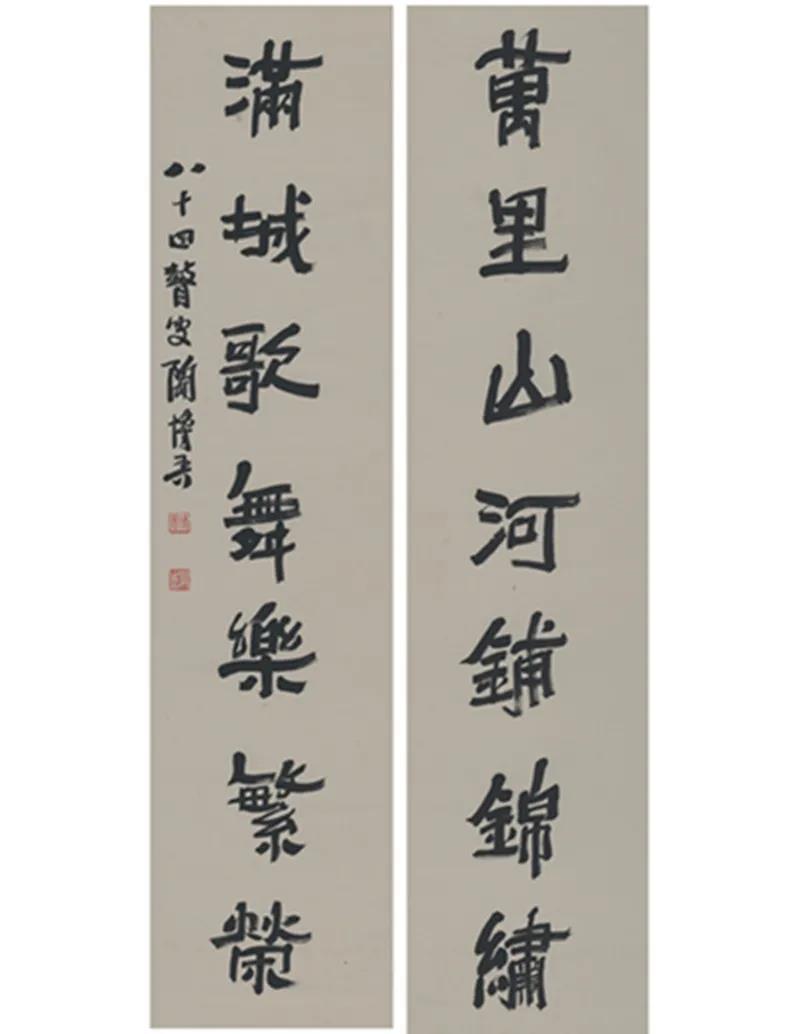 萬里山河鋪錦繡
滿城歌舞樂繁榮
八十四瞽叟陶博吾